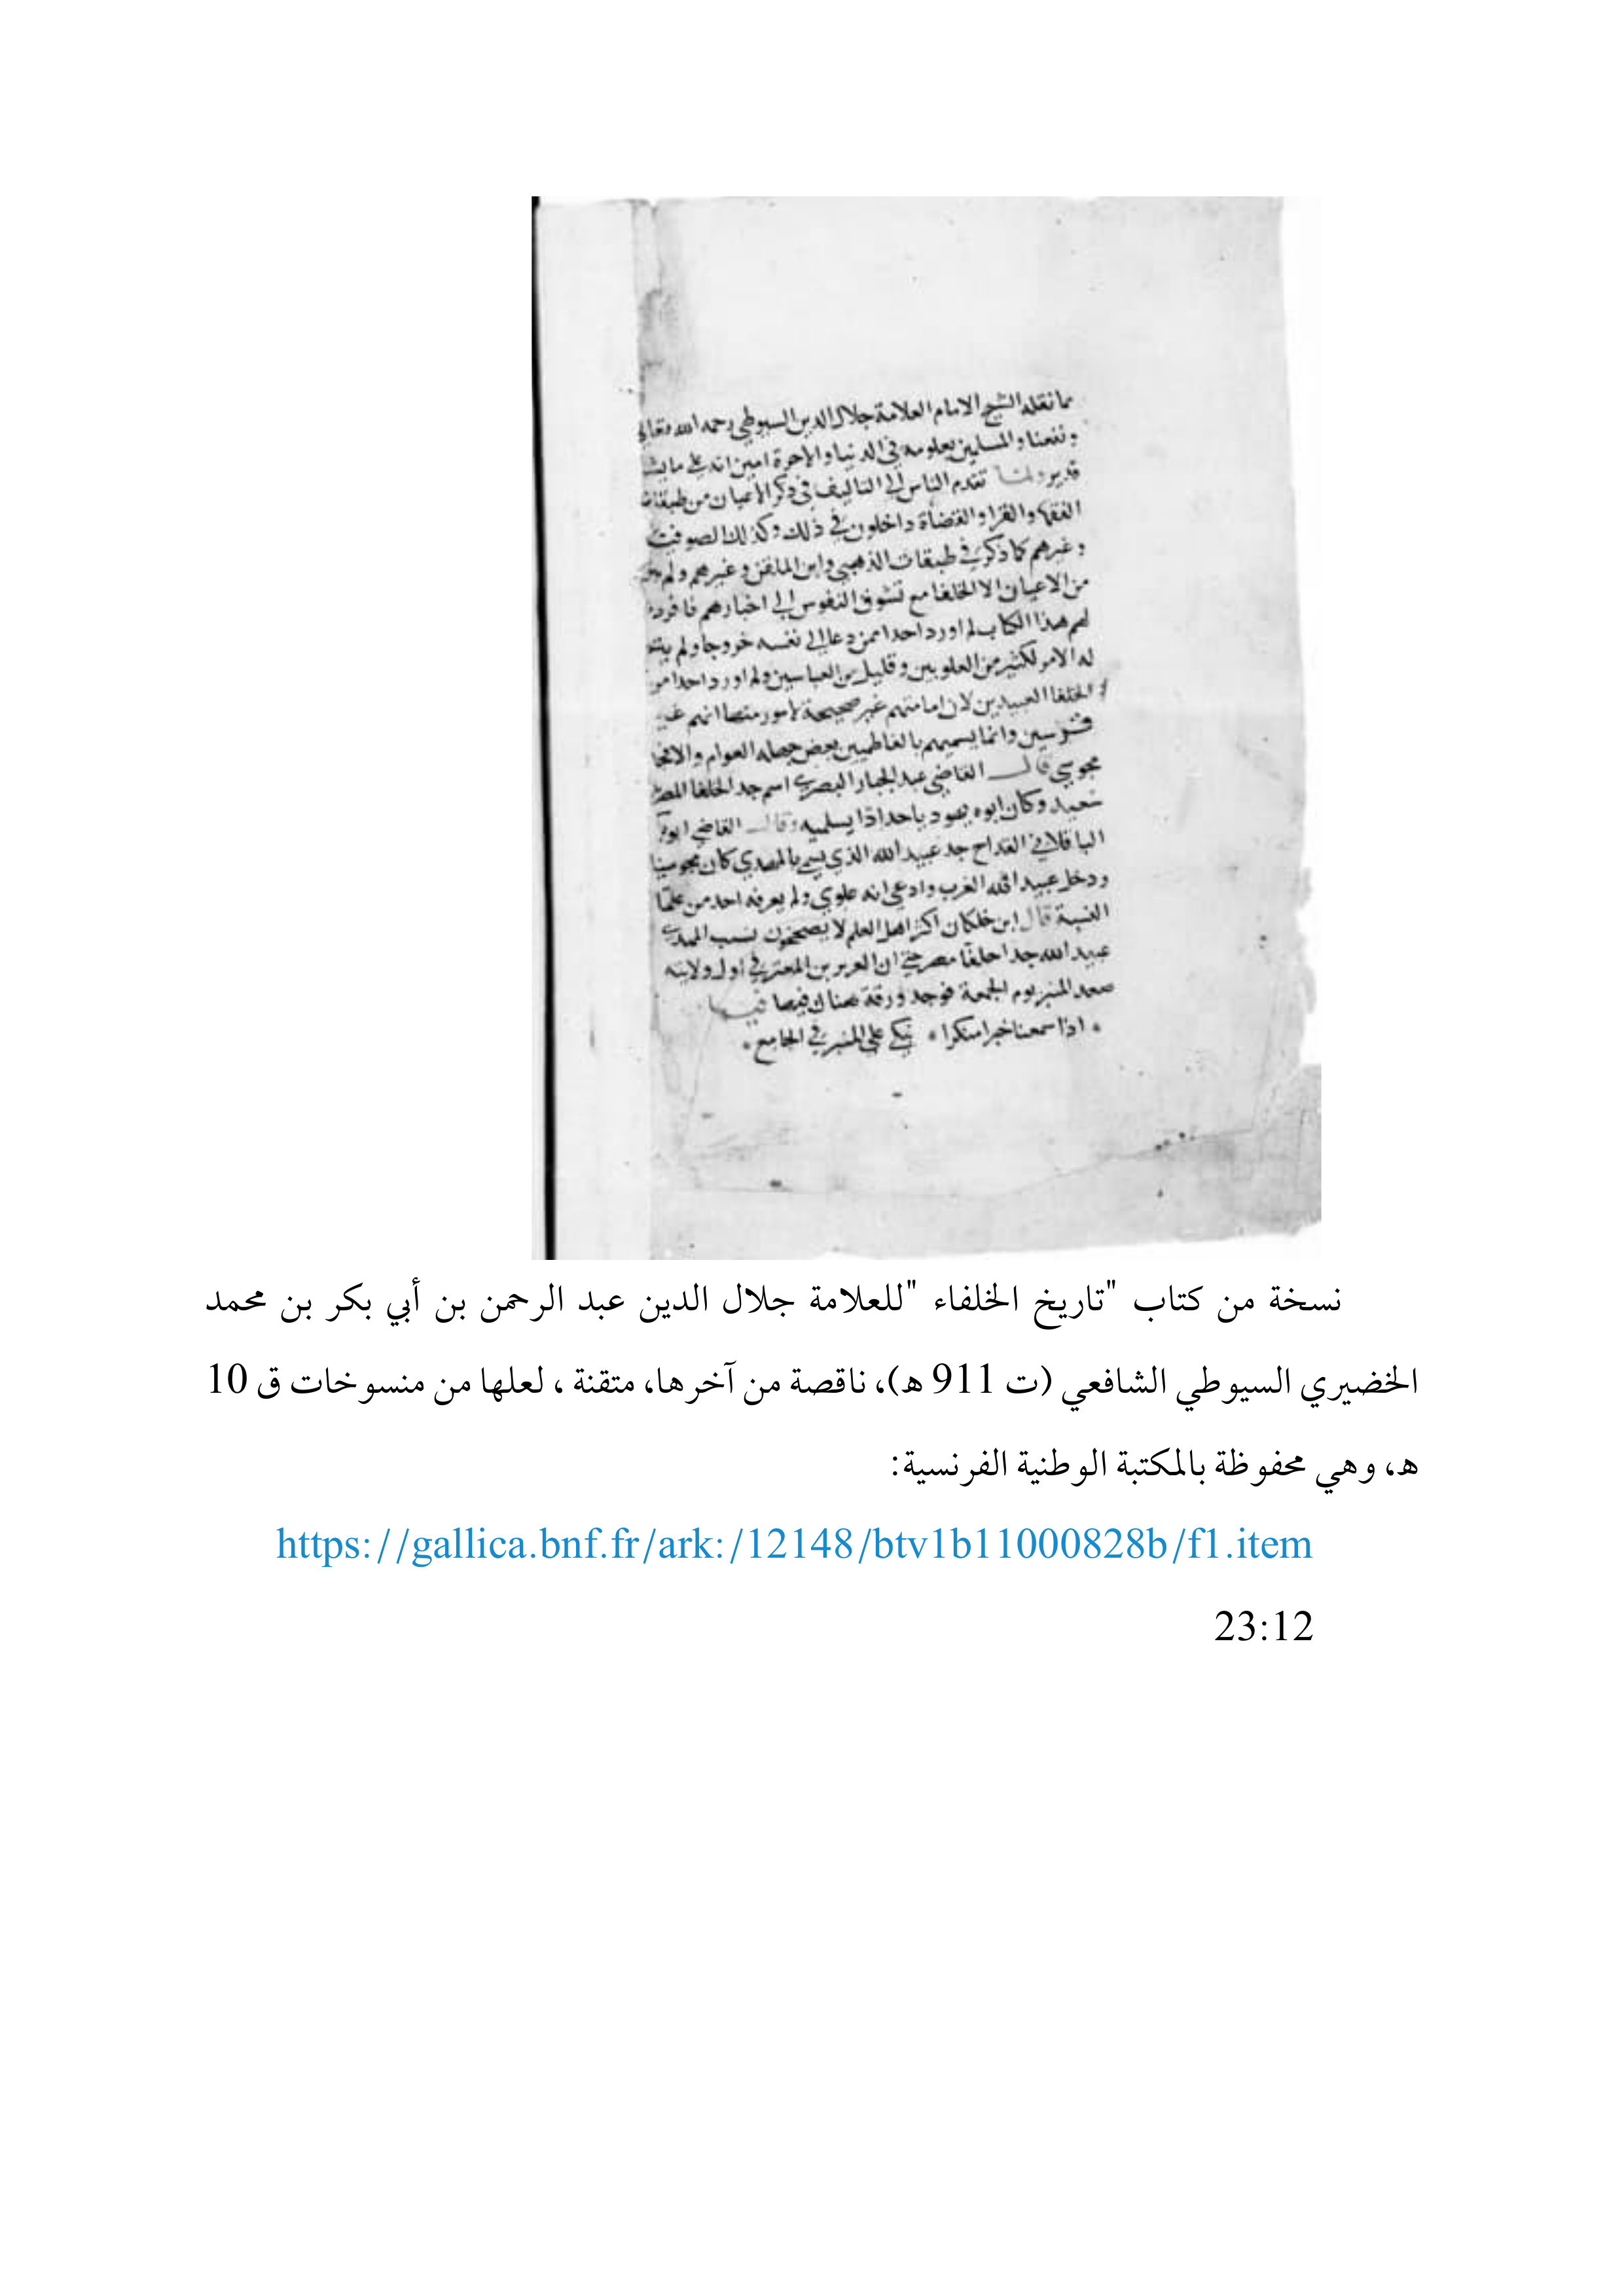 مما نقله الشيخ الامام العلامة جلال الدين السيوطي رحمه الله تعالى
ونفعنا والمسلمين بعلومه في الدنيا والاخرة امين انه على ما يشا
قدير ولما تقدم الناس الى التاليف في ذكر الاعيان من طبقات
الفقها والقرا والقضاة داخلون في ذلك وكذلك الصوفية
وغيرهم كما ذكر في طبقات الذهبي وابن الملقن وغيرهم ولم
من الاعيان الا الخلفا مع تشوق النفوس الى اخبارهم فافردت
لهم هذا الكتاب لم اورد احدا ممن دعا الى نفسه خروجا ولم يتم
له الامر لكثير من العلويين وقليل من العباسين ولم اورد احدا من
الخلفا العبيدين لان امامتهم غير صحيحة لامور منها انهم غير
قريشين وانما يسميهم بالفاطميين بعض جهله العوام والا فجد
مجوسي قال القاضي عبد الجبار البصري اسم جد الخلفا المصر
سعيد وكان ابوه يهوديا حدادا يسلميه وقال القاضي ابو
الباقلاني القداح جد عبيد الله الذي يسمى بالمهدي كان مجوسيا
ودخل عبيد الله الغرب وادعى انه علوي ولم يعرفه احد من علما
النسبة قال ابن خلكان اكثر اهل العلم لا يصححون نسب المهدي
عبيد الله جد احلفا مصر حتى ان العزيز بن المعتز في اول ولايته
صعد المنبر يوم الجمعة فوجد ورقة هناك فيها
اذا سمعنا خبرا منكرا * نبكي على المنبر في الجامع *
نسخة من كتاب "تاريخ الخلفاء "للعلامة جلال الدين عبد الرحمن بن أبي بكر بن محمد
الخضيري السيوطي الشافعي (ت 911 ه)، ناقصة من آخرها، متقنة ، لعلها من منسوخات ق 10
ه، وهي محفوظة بالمكتبة الوطنية الفرنسية:
https://gallica.bnf.fr/ark:/12148/btv1b11000828b/f1.item
23:12